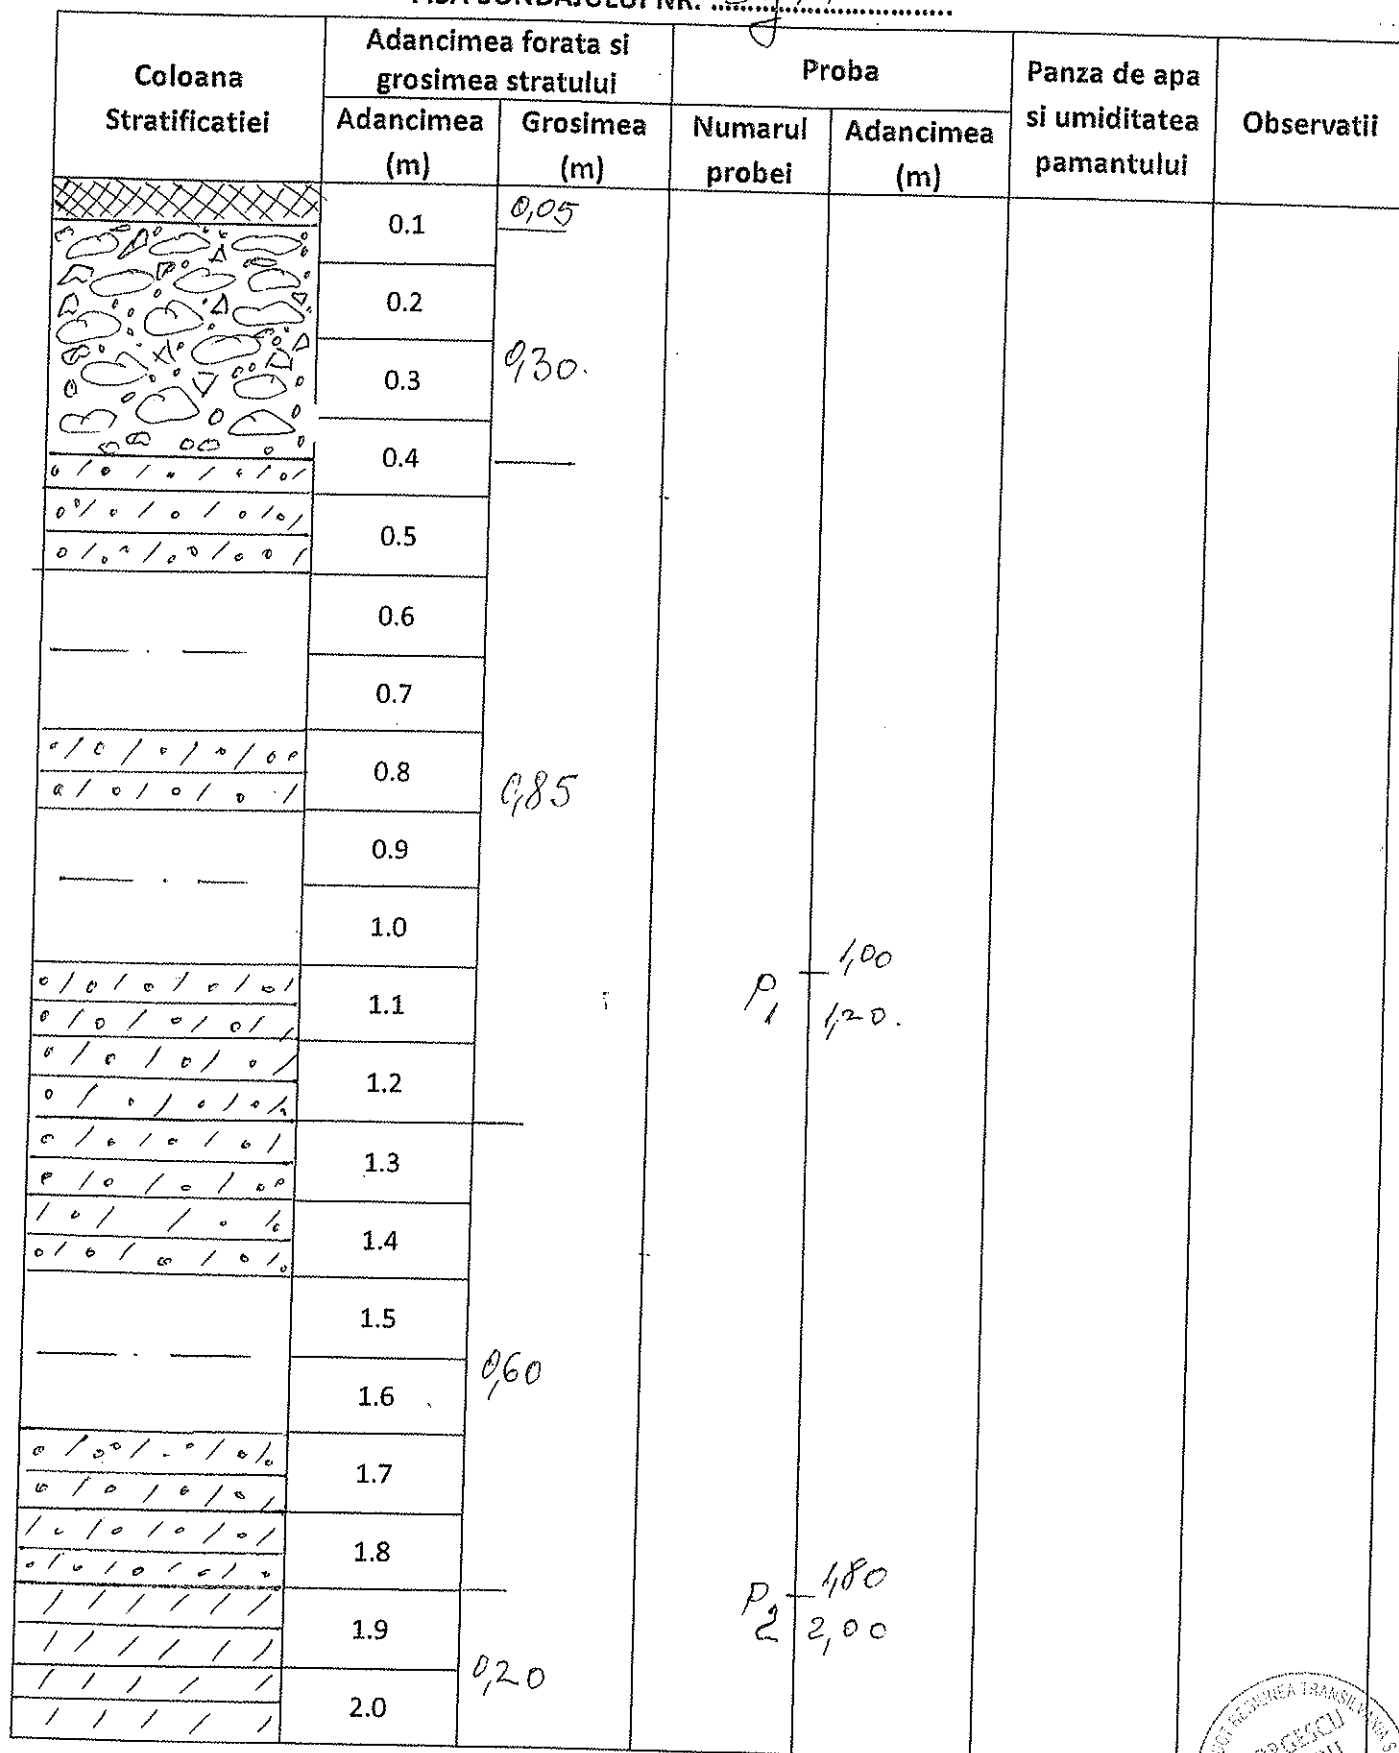 Coloana
Stratificatiei
Adancimea forata si
grosimea stratului
Adancimea
(m)
Grosimea
(m)
Proba
Numarul
probei
Adancimea
(m)
Panza de apa
si umiditatea
pamantului
Observatii
0.1
0,05
0.2
0.3
0,30.
0.4
0.5
0.6
0.7
0.8
0,85
0.9
1.0
1.1
P1
1,00
1,20.
1.2
1.3
1.4
1.5
1.6
0,60
1.7
1.8
1.9
P2
1,80
2,00
2.0
0,20